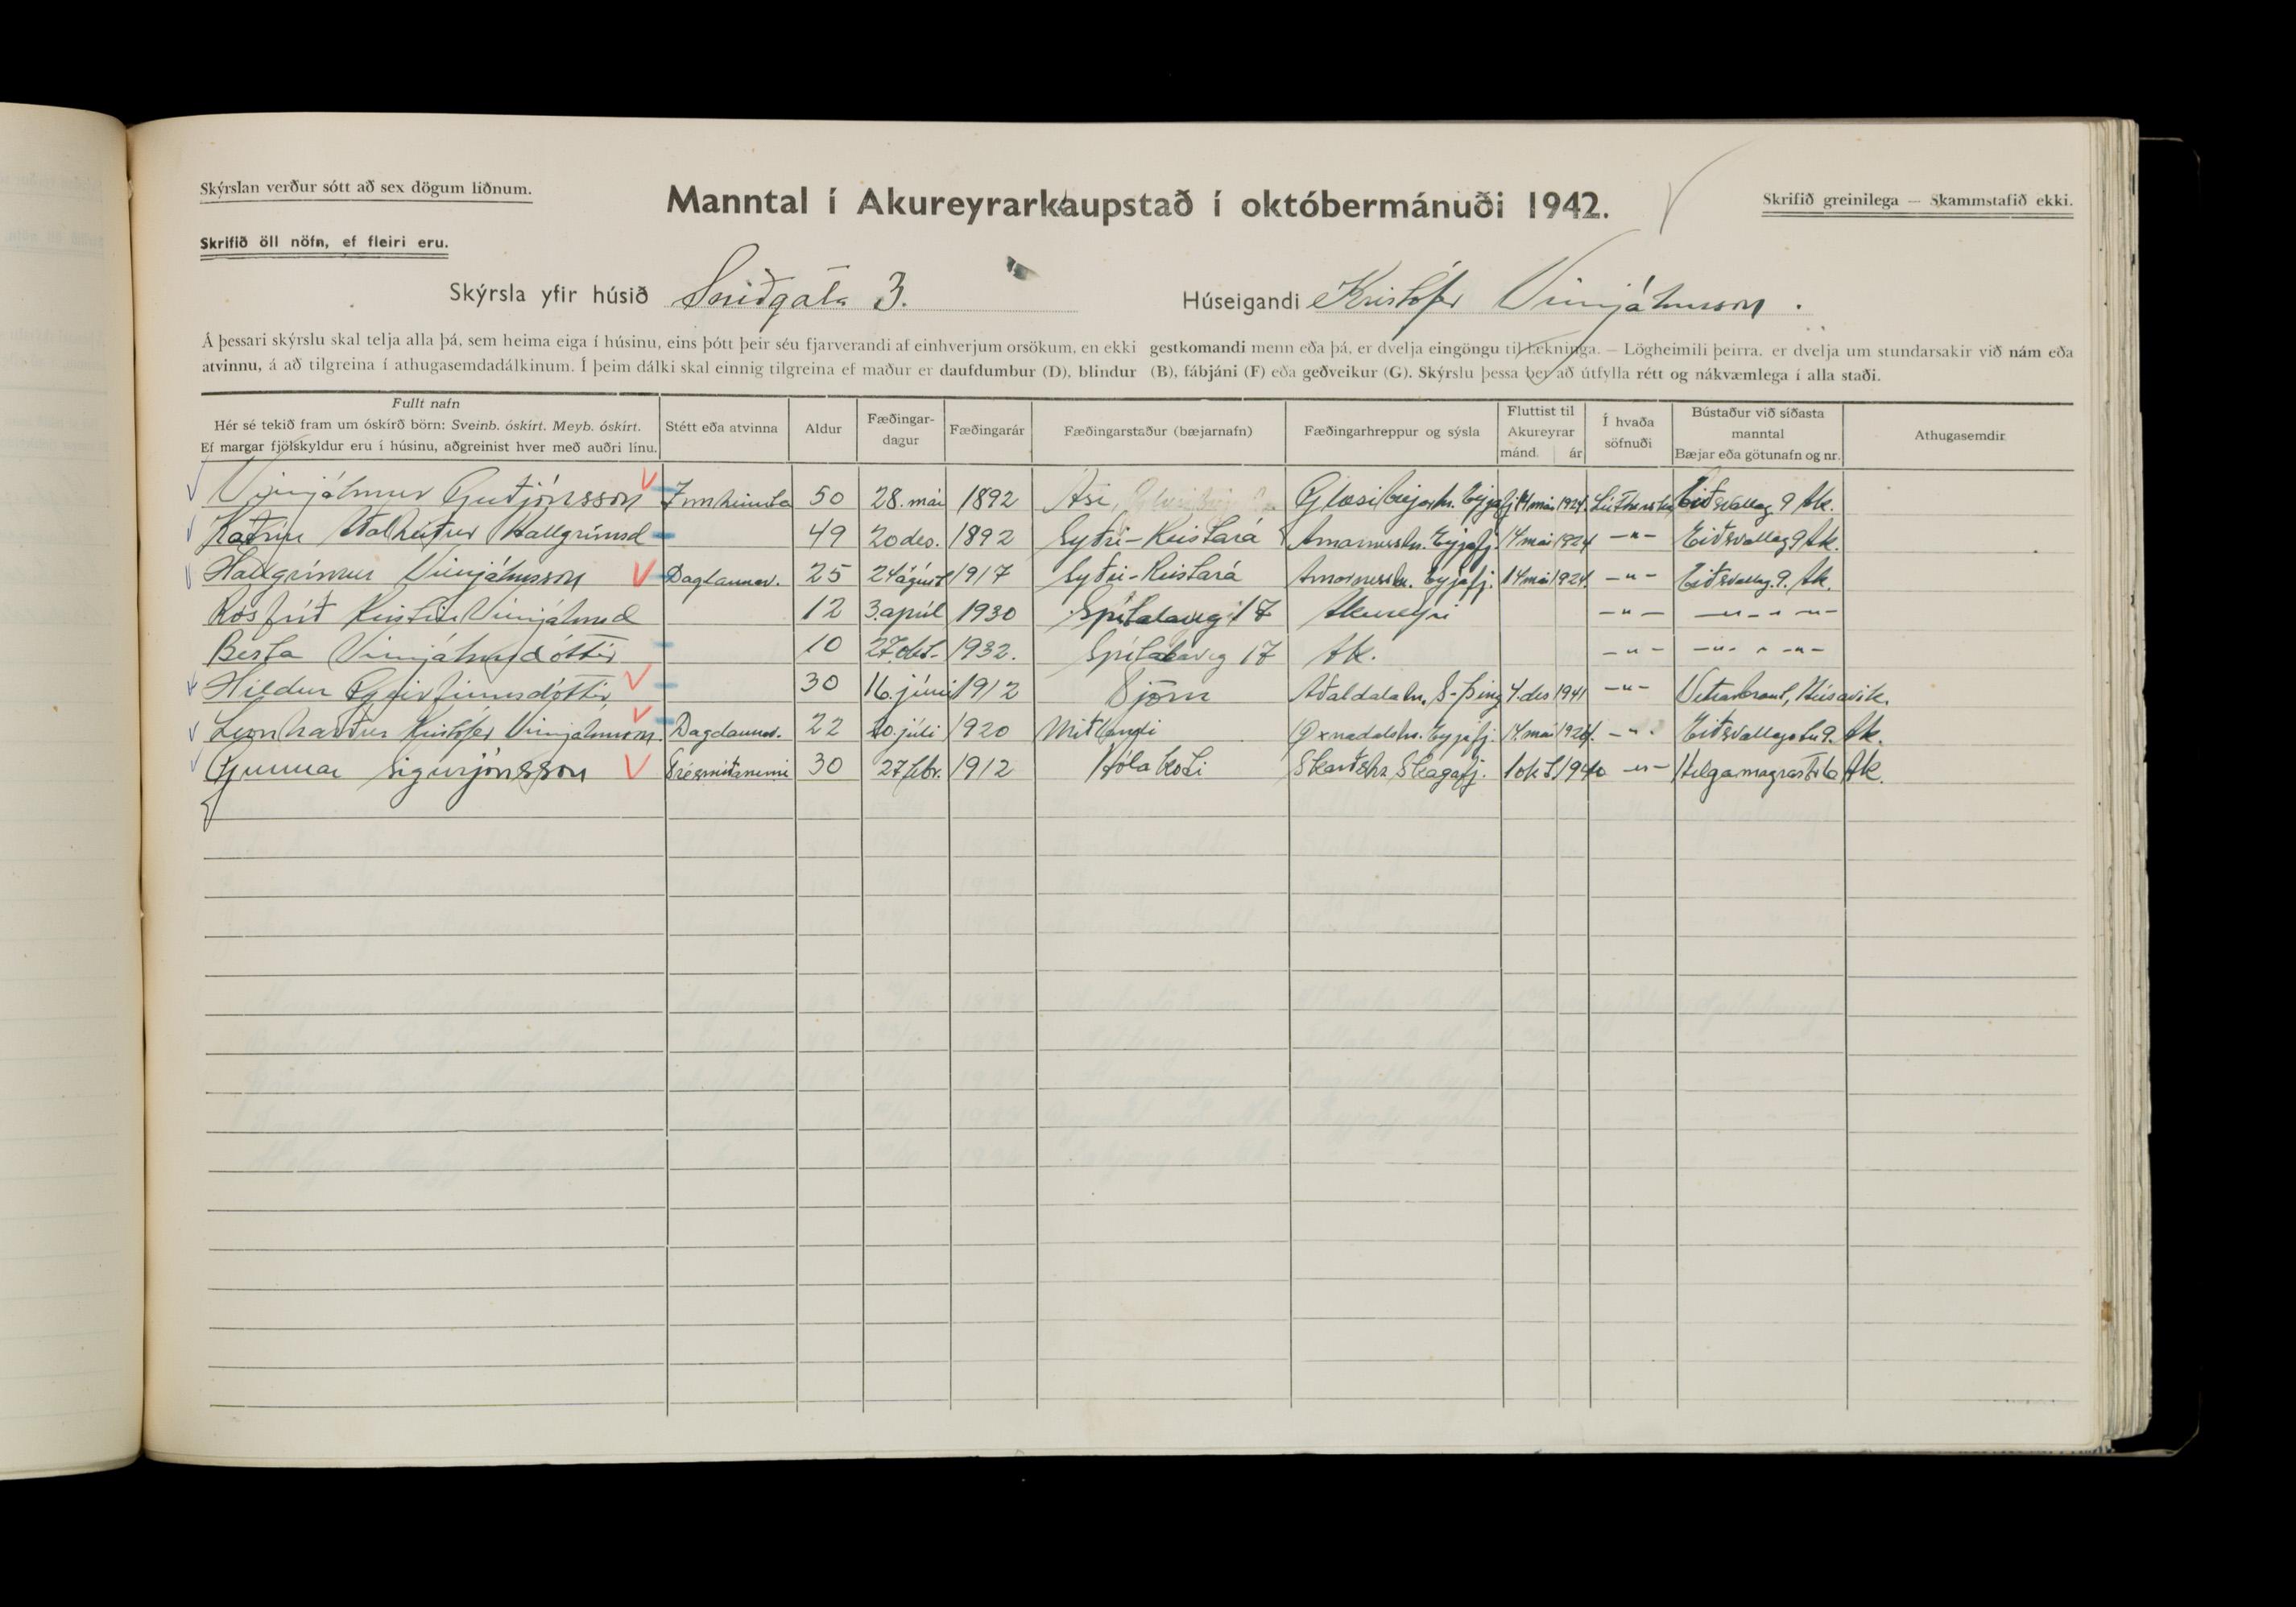 Skýrslan verður sótt að sex dögum liðnum.
Manntal í Akureyrarkaupstað í októbermánuði 1942.
Skrifið greinilega — Skammstafið ekki.
Skrifið öll nöfn, ef fleiri eru.
Skýrsla yfir húsið Sniðgata 3. Húseigandi Kristófer Vilhjálmsson.
Á þessari skýrslu skal telja alla þá, sem heima eiga í húsinu, eins þótt þeir séu fjarverandi af einhverjum orsökum, en ekki gestkomandi menn eða þá, er dvelja eingöngu til lækninga. — Lögheimili þeirra, er dvelja um stundarsakir við nám eða
atvinnu, á að tilgreina í athugasemdadálkinum. Í þeim dálki skal einnig tilgreina ef maður er daufdumbur (D), blindur (B), fábjáni (F) eða geðveikur (G). Skýrslu þessa ber að útfylla rétt og nákvæmlega í alla staði.
Fullt nafn
Hér sé tekið fram um óskírð börn: Sveinb. óskírt. Meyb. óskírt.
Ef margar fjölskyldur eru í húsinu, aðgreinist hver með auðri línu.
Stétt eða atvinna
Aldur
Fæðingar-
dagur
Fæðingarár
Fæðingarstaður (bæjarnafn)
Fæðingarhreppur og sýsla
Fluttist til
Akureyrar
mánd. ár
Í hvaða
söfnuði
Bústaður við síðasta
manntal
Bæjar eða götunafn og nr.
Athugasemdir
Vilhjálmur Guðjónsson Innheimta 50 28. maí 1892 Ási, Glæsibæjarhr. Eyjafj. 14 maí 1924. Lútherska Eiðsvallag 9 Ak.
Katrín Aðalheiður Hallgrímsd 49 20 des. 1892 Syðri-Reistará Arnarneshr. Eyjafj. 14 maí 1924 —"— Eiðsvallag 9 Ak.
Hallgrímur Vilhjálmsson Daglaunav. 25 24 ágúst 1917 Syðri-Reistará Arnarneshr. Eyjafj. 14 maí 1924. —"— Eiðsvallag. 9. Ak.
Rósfríð Kristín Vilhjálmsd 12 3. apríl 1930 Spítalaveg 17 Akureyri —"— —"— " —"—
Berta Vilhjálmsdóttir 10 27. okt. 1932. Spítalaveg 17 Ak. —"— —"— " —"—
Hildur 30 16. júní 1912 Björn Aðaldalahr. S-Þing 4. des 1941 —"— Húsavík.
Leonharður Kristófer Vilhjálmsson. Daglaunav. 22 20. júlí 1920 Miðlandi Öxnadalshr. Eyjafj. 14. maí 1924. —"— Eiðsvallagötu 9. Ak.
Gunnar Sigurjónsson Trésmíðanemi 30 27 febr. 1912 Hólakoti Skarðshr Skagafj. 1 okt 1940 —"— Ak.